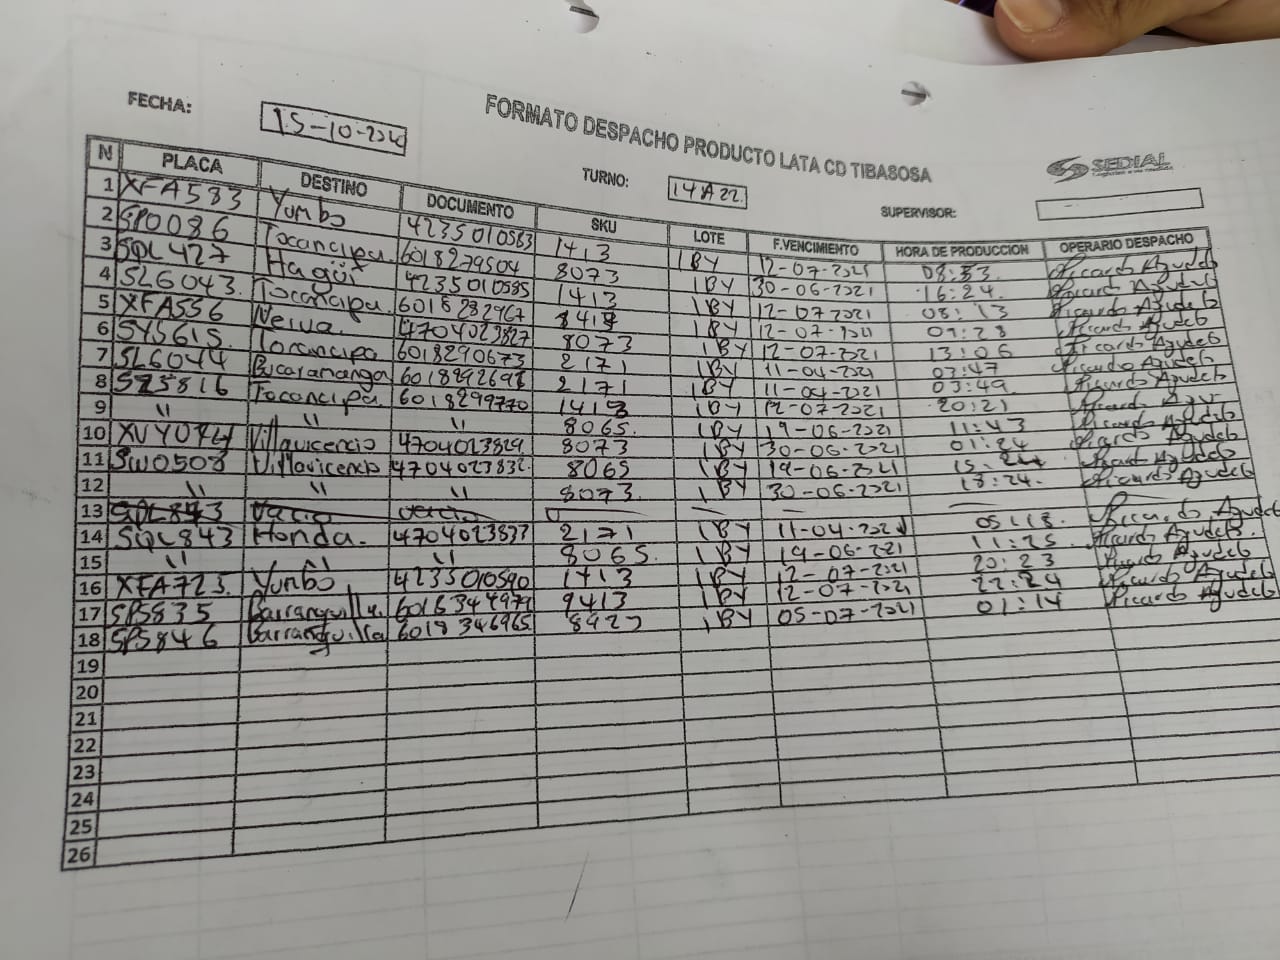 FORMATO DESPACHO PRODUCTO LATA CD TIBASOSA
FECHA: 15-10-2020
TURNO: 14 A 22.
SEDIAL
SUPERVISOR:
N PLACA DESTINO DOCUMENTO SKU LOTE F.VENCIMIENTO HORA DE PRODUCCION OPERARIO DESPACHO
1 XFA583 Yumbo 4235010583 1413 1BY 12-07-2021 08:53 Ricardo Agudelo
2 SPO086 Tocancipa. 6018279504 8073 1BY 30-06-2021 16:24 Ricardo Agudelo
3 SQL427 Hagüi 4235010585 1413 1BY 12-07-2021 08:13 Ricardo Agudelo
4 SLG043. Tocancipa 6018282967 1BY 12-07-2021 Ricardo Agudelo
5 XFA556 Neiva. 4704023827 8073 1BY 12-07-2021 13:06 Ricardo Agudelo
6 SYS615. Tocancipa 6018290673 2171 1BY 11-04-2021 03:47 Ricardo Agudelo
7 SLG044 Bucaramanga 2171 1BY 11-04-2021 03:49 Ricardo Agudelo
8 Tocancipa. 6018299770 1413 1BY 12-07-2021 20:21 Ricardo
9 " " " 8065. 1BY 19-06-2021 11:43 Ricardo Agudelo
10 Villavicencio 4704023829 8073 1BY 30-06-2021 01:24 Ricardo Agudelo
11 SWO508 Villavicencio 4704023832. 8065 1BY 19-06-2021 Ricardo Agudelo
12 " " " 8073. 1BY 30-06-2021 18:24. Ricardo Agudelo
13 SQL843 Vacio vacio
14 SQL843 Honda. 4704023837 2171 1BY 11-04-2021 05:18. Ricardo Agudelo
15 " " " 8065. 1BY 19-06-2021 11:25 Ricardo Agudelo.
16 XFA723. Yumbo 4235010590 1413 1BY 12-07-2021 20:23 Ricardo Agudelo
17 SPS835 Barranquilla. 9413 1BY 12-07-2021 22:24 Ricardo Agudelo
18 SPS846 Barranquilla 6018346965. 1BY 05-07-2021 01:14 Ricardo Agudelo
19
20
21
22
23
24
25
26